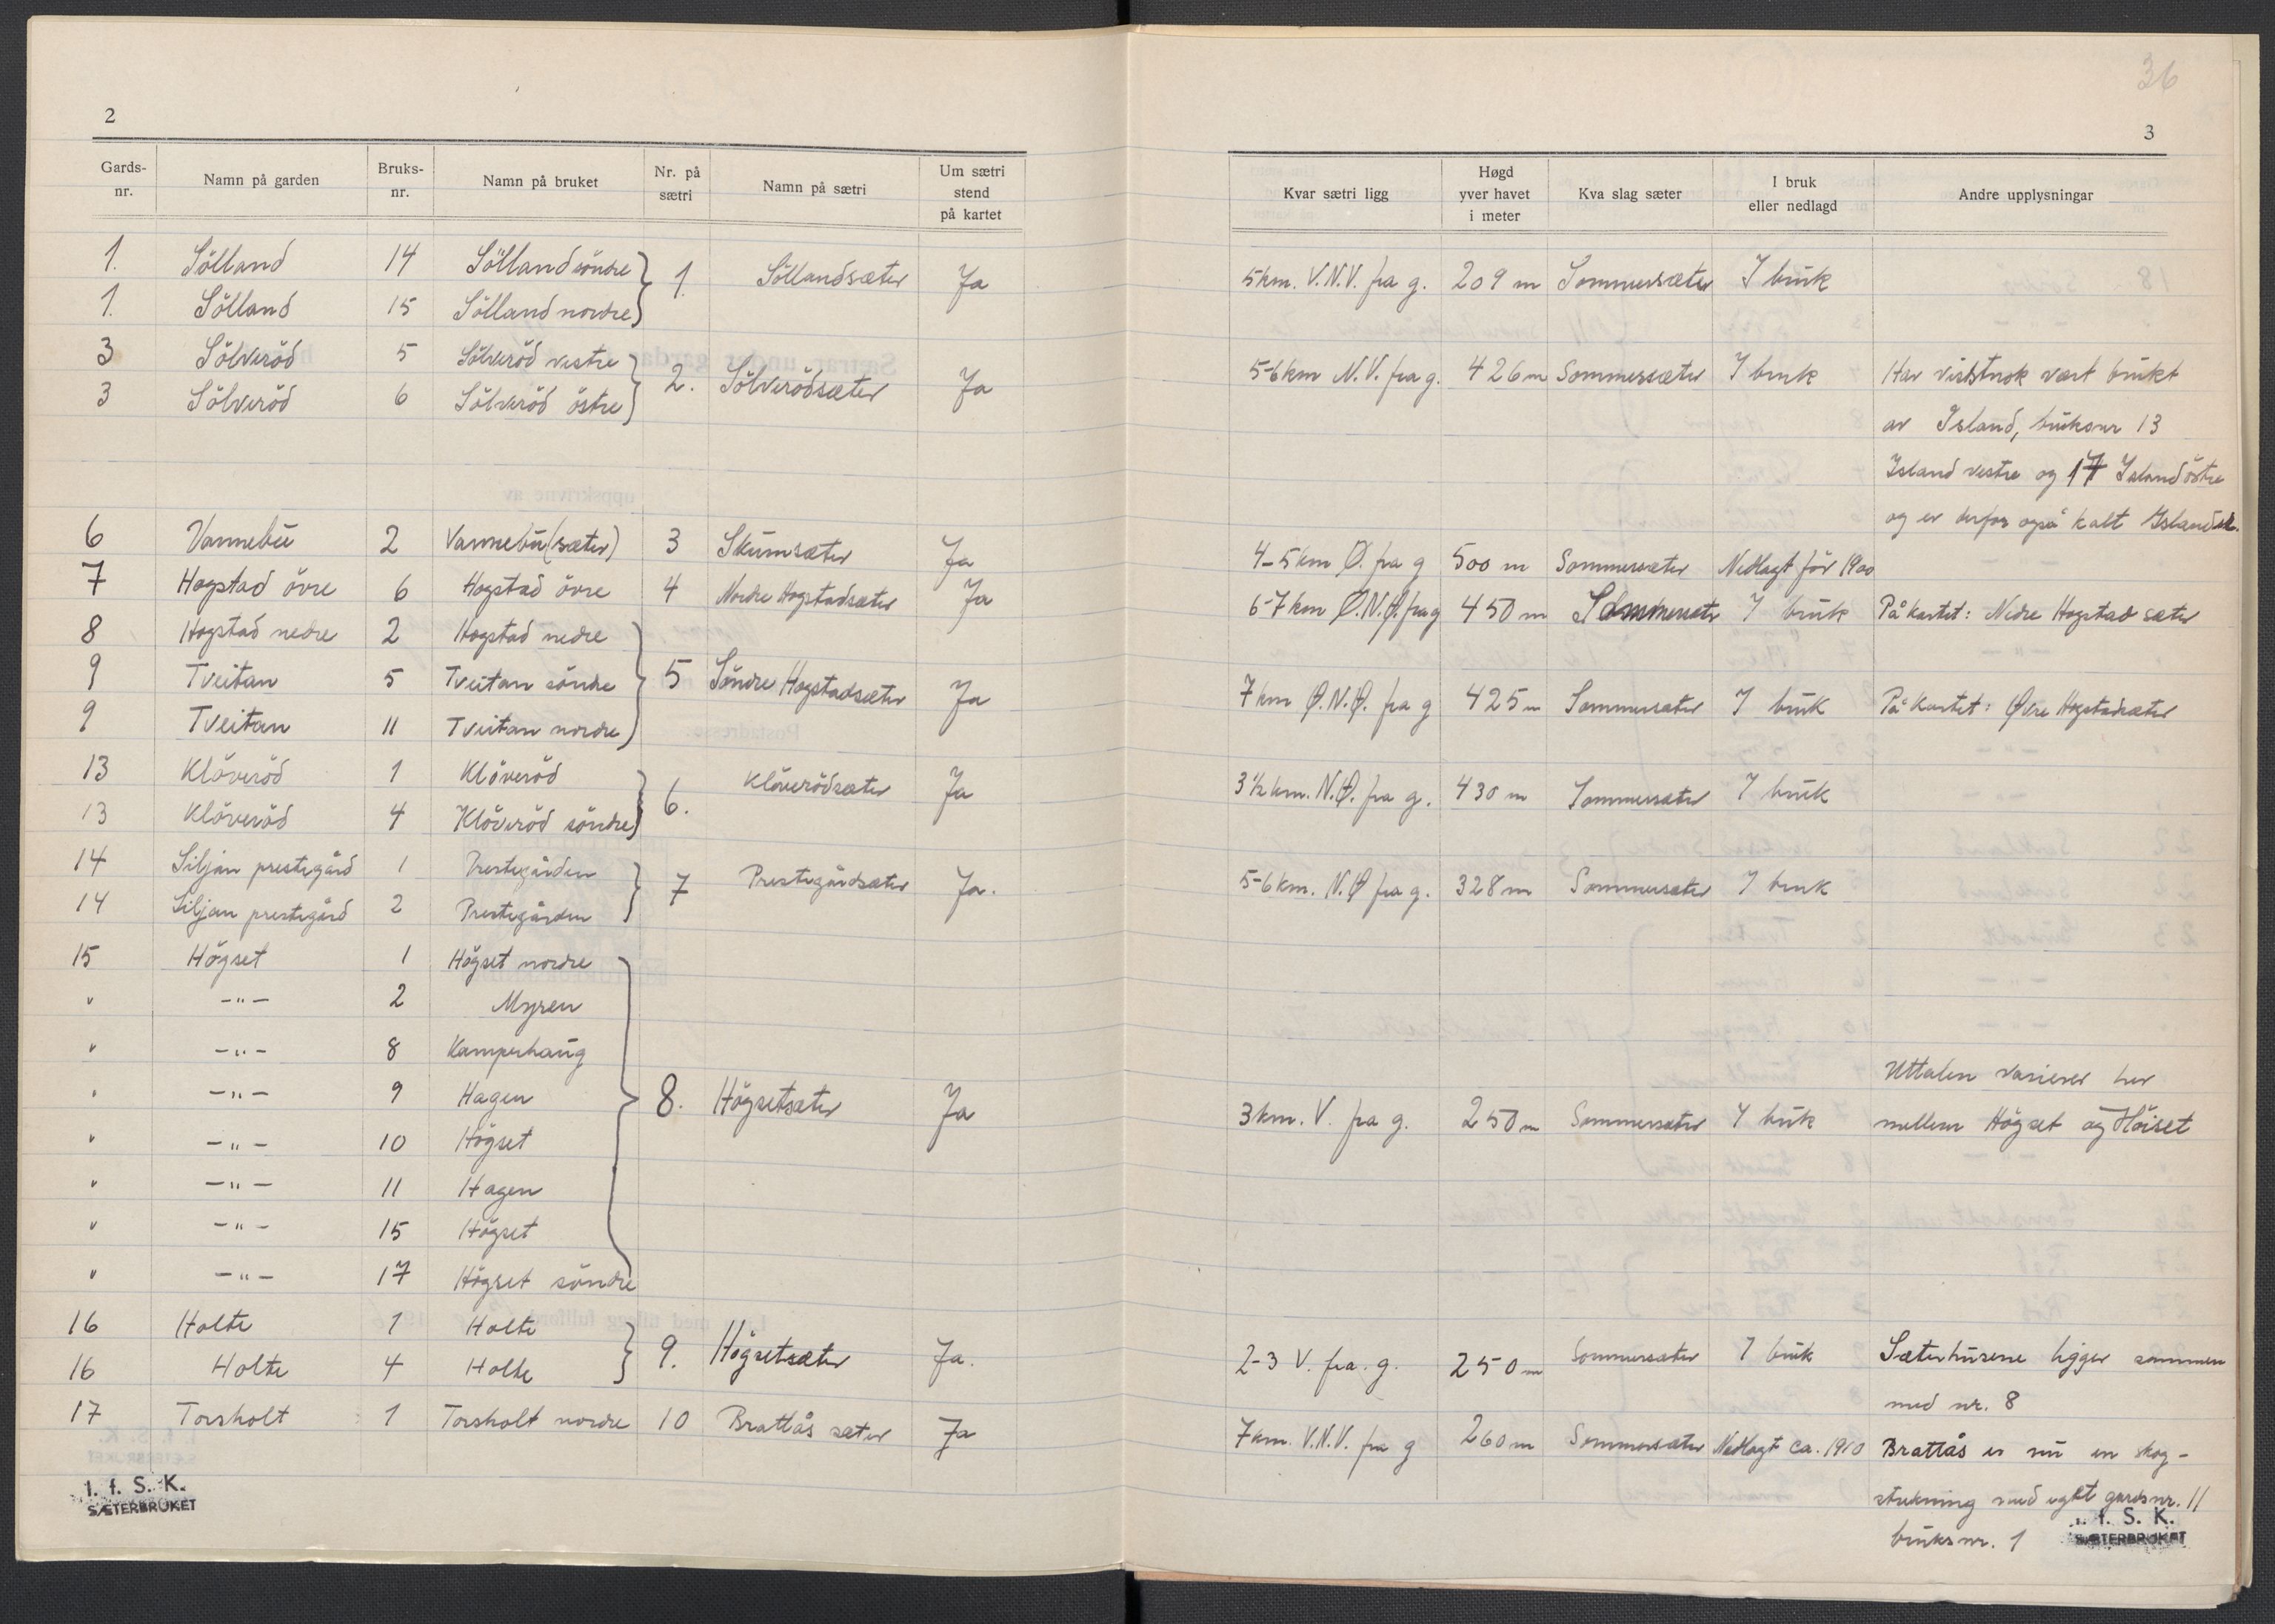 36
2
3
Gards-nr. Namn på garden Bruks-nr. Namn på bruket Nr. på sætri Namn på sætri Um sætri stend på kartet Kvar sætri ligg Høgd yver havet i meter Kva slag sæter I bruk eller nedlagd Andre upplysningar
1. Sölland 14 Sölland söndre 1. Söllandsæter Ja 5 km. V.N.V. fra g. 209 m Sommersæter I bruk
1. Sölland 15 Sölland nordre
3 Sölveröd 5 Sölveröd vestre 2. Sölverödsæter Ja 5-6 km N.V. fra g. 426 m Sommersæter I bruk Har visstnok vært brukt
3 Sölveröd 6 Sölveröd östre
av Island, bruksnr 13
Island vestre og 17 Island östre
og er derfor også kalt Islandsæ.
6 Vannebu 2 Vannebu (sæter) 3 Skumsæter Ja 4-5 km Ø. fra g 500 m Sommersæter Nedlagt för 1900
7 Hogstad övre 6 Hogstad övre 4 Nordre Hogstadsæter Ja 6-7 km Ø.N.Ø. fra g 450 m Sommersæter I bruk På kartet: Nedre Hogstadsæter
8 Hogstad nedre 2 Hogstad nedre
9 Tveitan 5 Tveitan söndre 5 Söndre Hogstadsæter Ja 7 km Ø.N.Ø. fra g 425 m Sommersæter I bruk På Kartet: Øvre Hogstadsæter
9 Tveitan 11 Tveitan nordre
13 Klöveröd 1 Klöveröd 6. Klöverödsæter Ja 3 1/2 km. N.Ø. fra g. 430 m Sommersæter I bruk
13 Klöveröd 4 Klöveröd söndre
14 Siljan prestegård 1 Prestegården 7 Prestegårdsæter Ja. 5-6 km. N.Ø fra g. 328 m Sommersæter I bruk
14 Siljan prestegård 2 Prestegården
15 Högset 1 Högset nordre
" -"- 2 Myren
" -"- 8 Kamperhaug
Uttalen varierer her
" -"- 9 Hagen 8. Högsetsæter Ja 3 km. V. fra g. 250 m Sommersæter I bruk mellem Högset og Höiset
" -"- 10 Högset
" -"- 11 Hagen
" -"- 15 Högset
" -"- 17 Högset söndre
16 Holte 1 Holte 9. Högsetsæter Ja. 2-3 V. fra g. 250 m Sommersæter I bruk Sæterhusene ligger sammen
16 Holte 4 Holte
med nr. 8
17 Torsholt 1 Torsholt nordre 10 Brattås sæter Ja 7 km. V.N.V. fra g 260 m Sommersæter Nedlagt ca. 1910 Brattås er nu en skog-
strekning med eget gardsnr. 11
bruksnr. 1
I. f. S. K.
SÆTERBRUKET
I. f. S. K.
SÆTERBRUKET